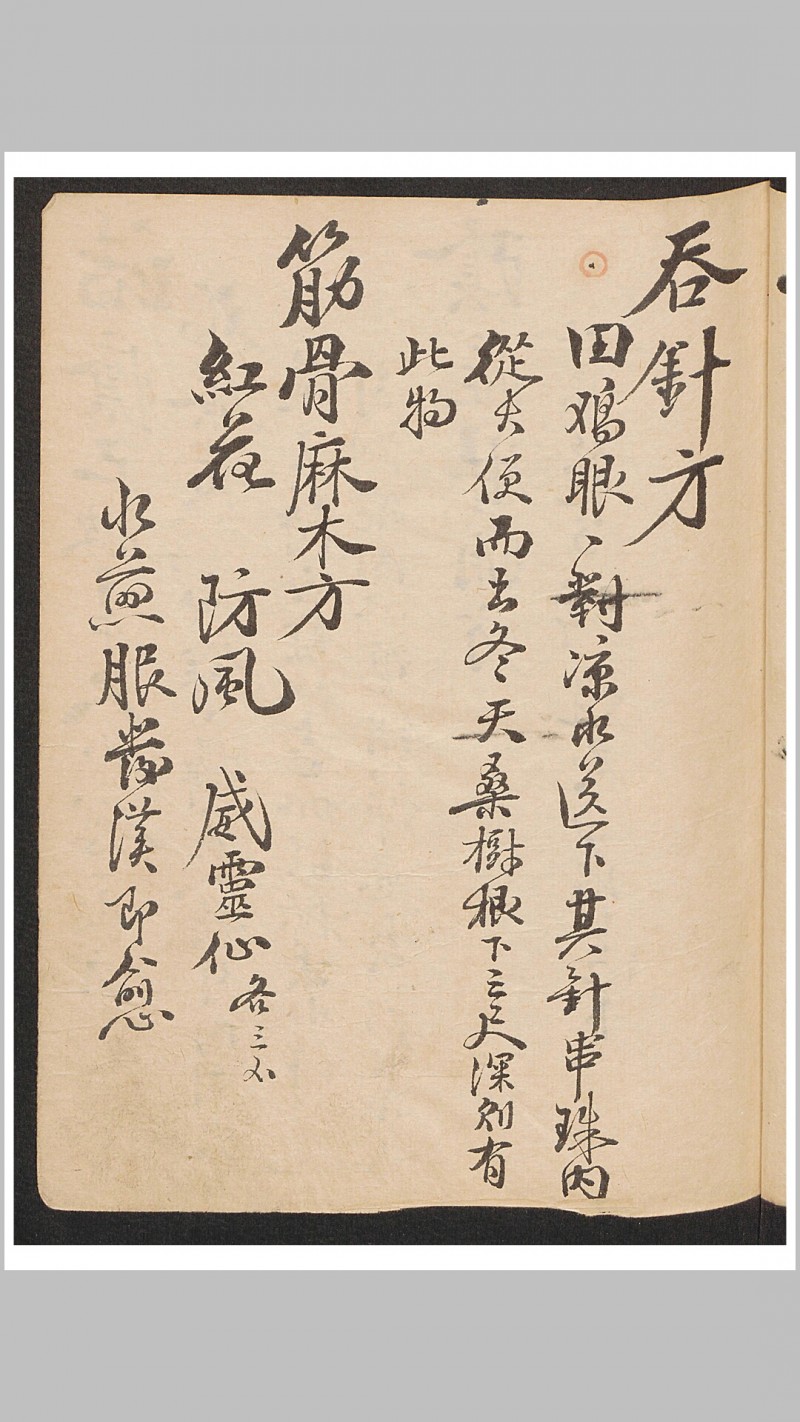 吞針方
田鳮眼一對凉水送下其針串珠內
從大便而出冬天桑樹根下三尺深則有
此物
筋骨麻木方
紅花 防風 威靈仙各三
水煎服發漢即愈